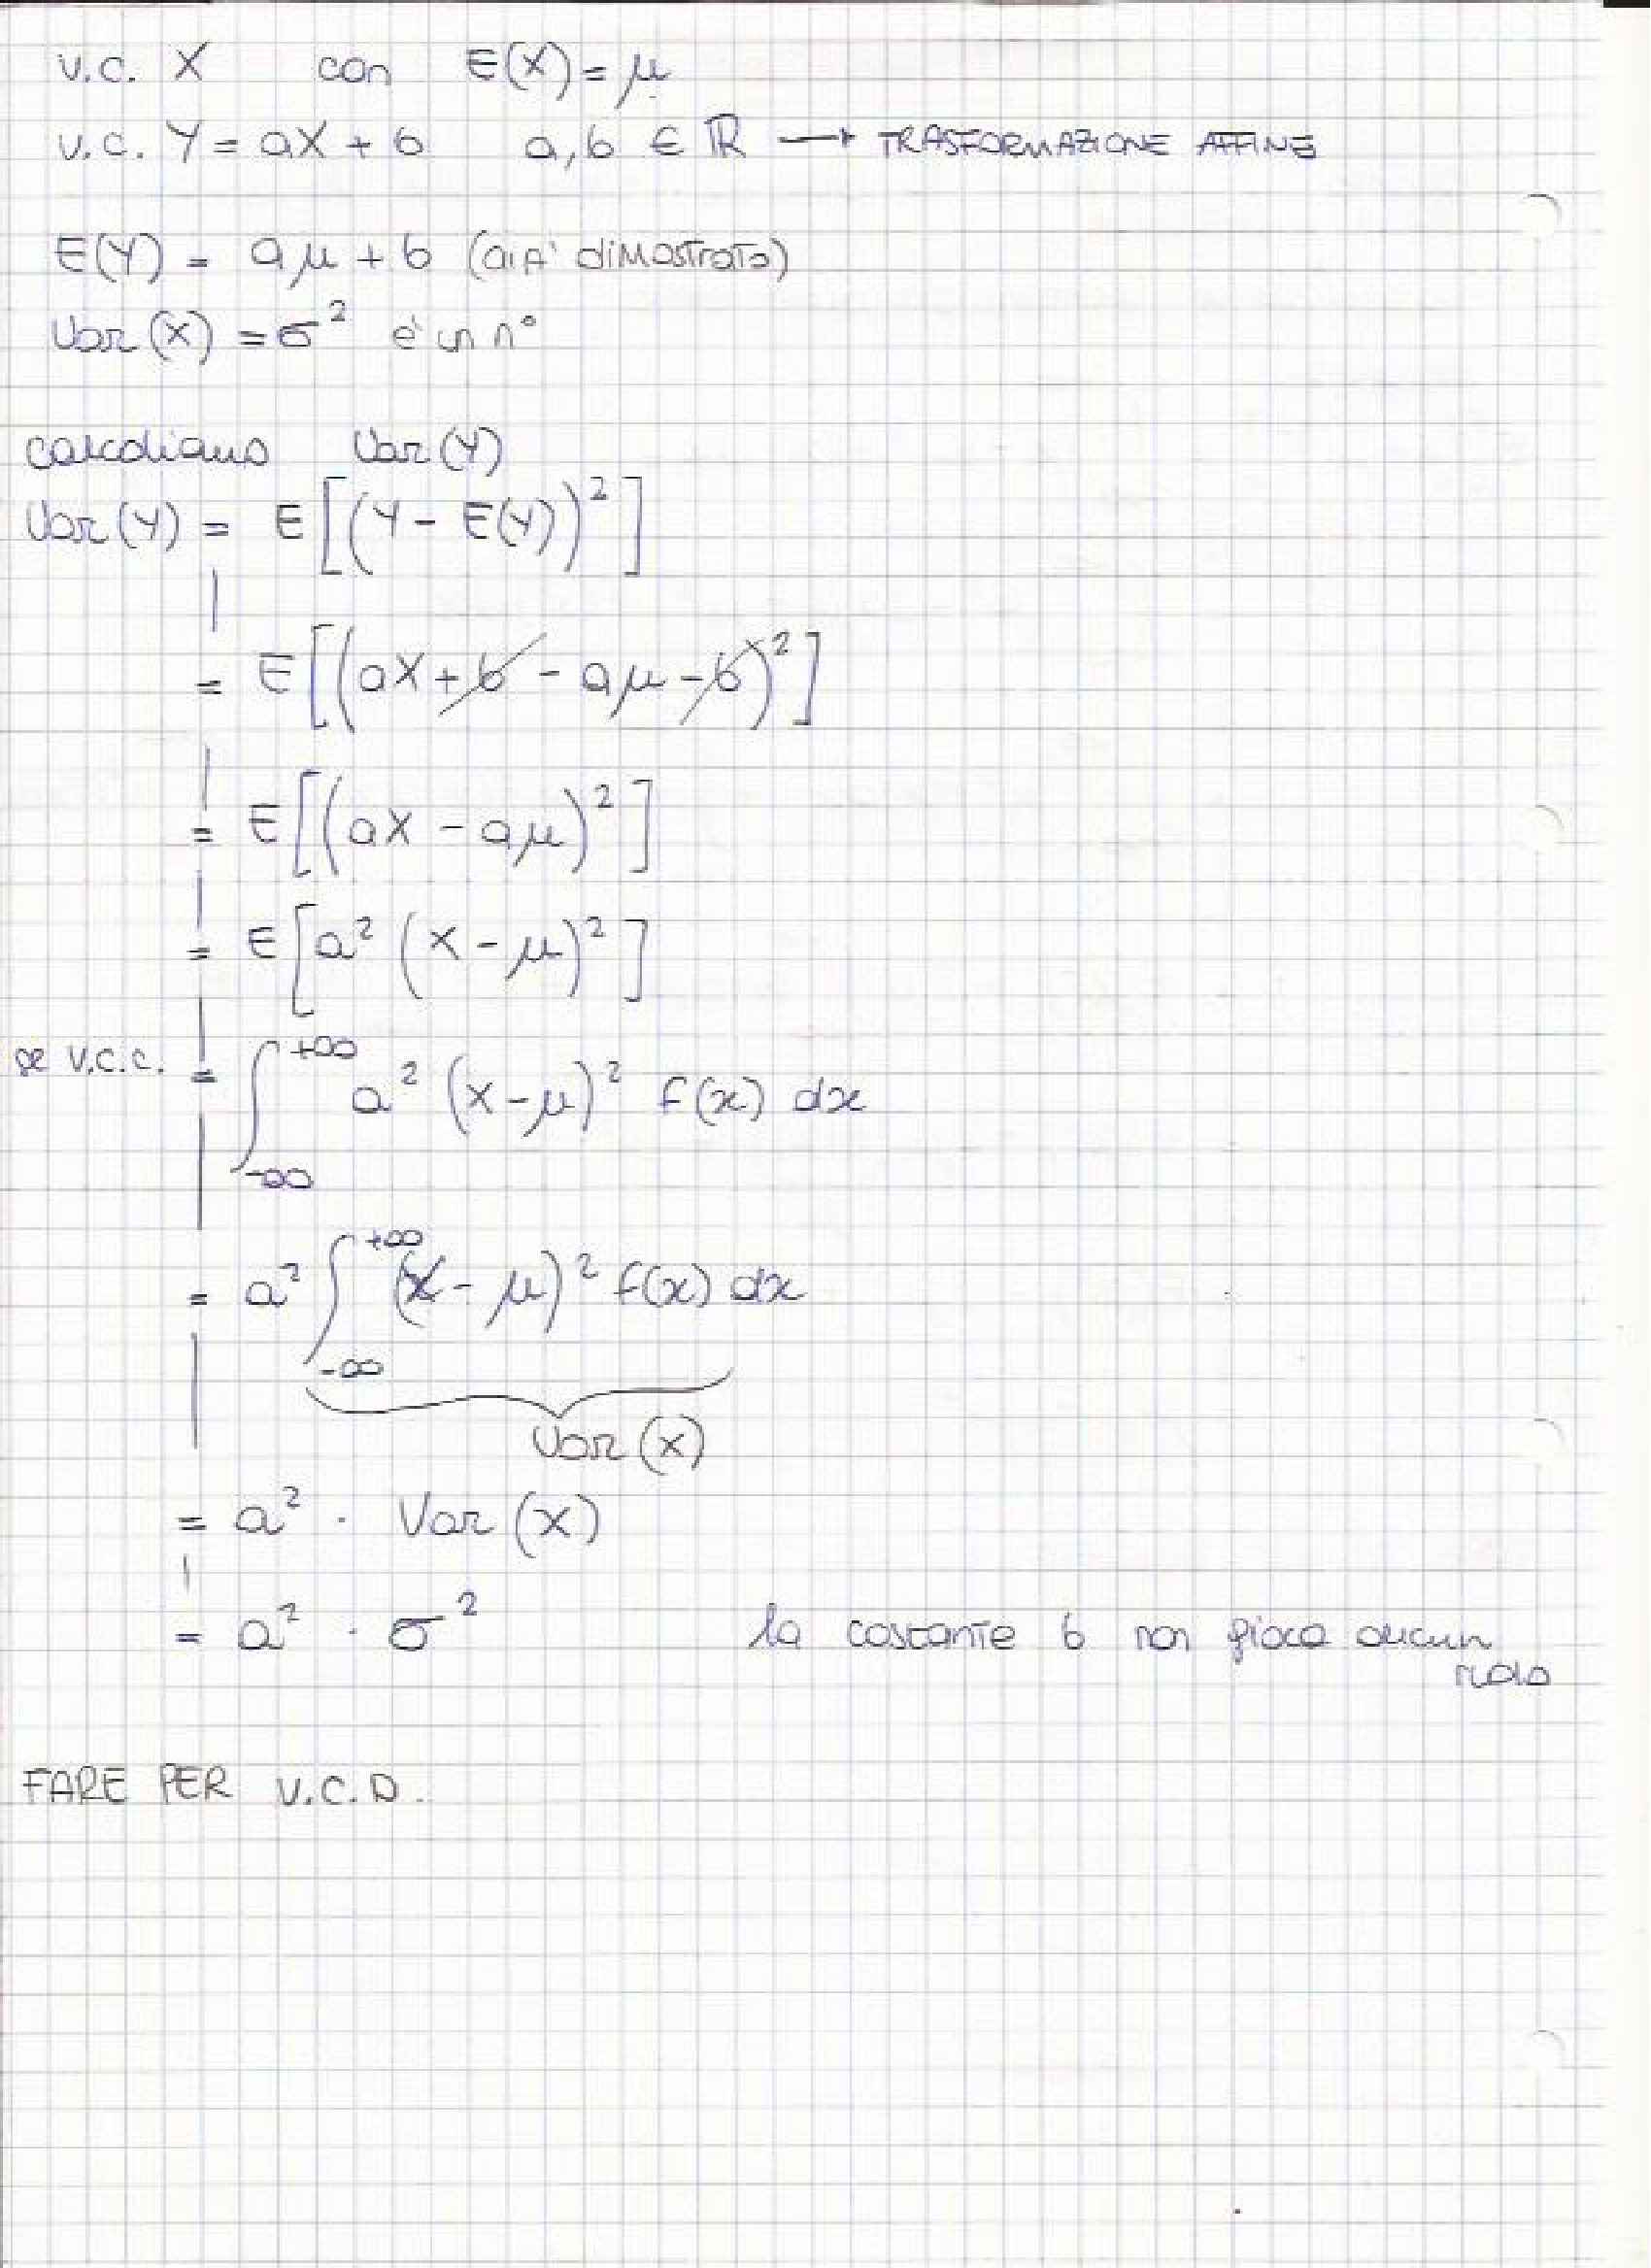 v.c. X con E(X) = μ
v.c. Y = aX + b a, b ∈ ℝ → TRASFORMAZIONE AFFINE
E(Y) = aμ + b (già dimostrato)
Var(X) = σ² è un n°
calcoliamo Var(Y)
Var(Y) = E[(Y - E(Y))²]
= E[(aX + b - aμ - b)²]
= E[(aX - aμ)²]
= E[a² (X - μ)²]
se v.c.c. = ∫_{-∞}^{+∞} a² (x - μ)² f(x) dx
= a² ∫_{-∞}^{+∞} (x - μ)² f(x) dx
Var(X)
= a² · Var(X)
= a² · σ² la costante b non gioca alcun
ruolo
FARE PER V.C.D.